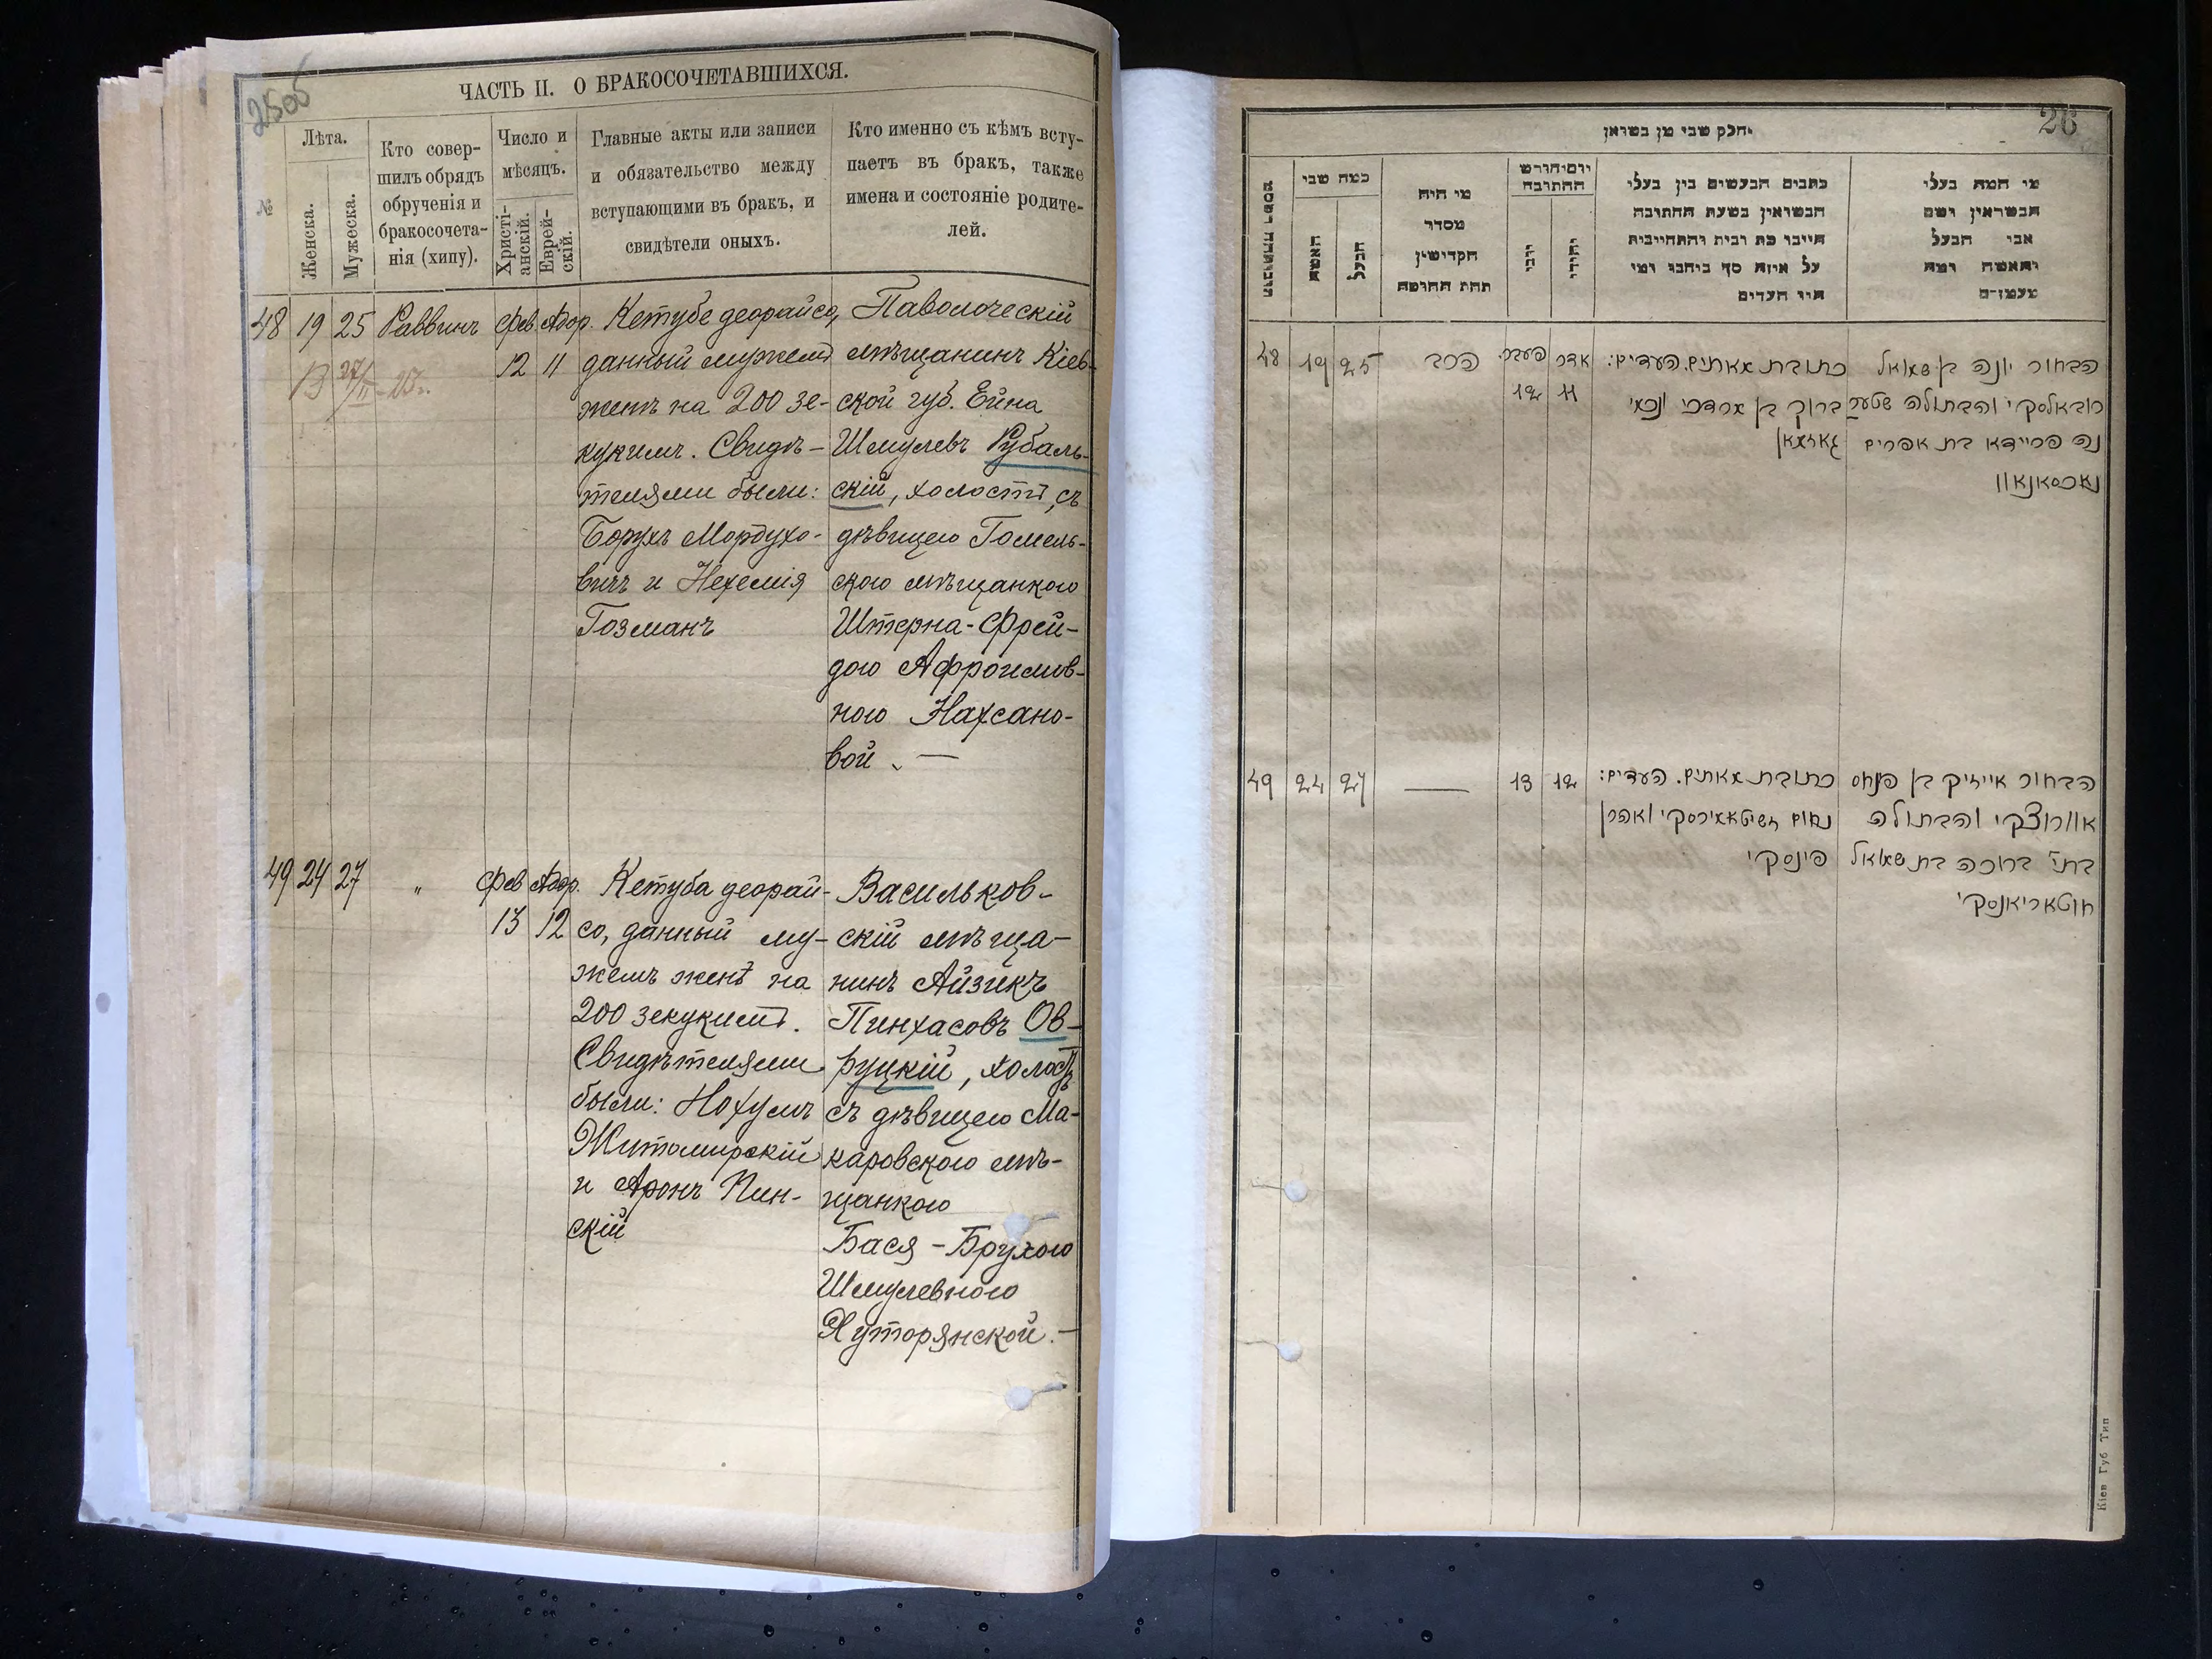 2505
ЧАСТЬ II. О БРАКОСОЧЕТАВШИХСЯ.
№
Лѣта.
Женска.
Мужеска.
Кто совер-
шилъ обрядъ
обрученія и
бракосочета-
нія (хипу).
Число и
мѣсяцъ.
Христі-
анскій.
Еврей-
скій.
Главные акты или записи
и обязательство между
вступающими въ бракъ, и
свидѣтели оныхъ.
Кто именно съ кѣмъ всту-
паетъ въ бракъ, также
имена и состояніе родите-
лей.
48 19 25 Раввинъ Фев. Адор.
12 11
Кетубе деорайсо,
данный мужемъ
женѣ на 200 зе-
кукимъ. Свидѣ-
телями были:
Борухъ Мордухо-
вичъ и Нехемія
Гозманъ
Паволоческій
мѣщанинъ Кіев-
ской губ. Ейна
Шмулевъ Рубаль-
скій, холостъ, съ
дѣвицею Гомель-
скою мѣщанкою
Штерна-Фрей-
дою Афроимов-
ною Нахсано-
вой. —
49 24 27 " Фев Адор.
13 12
Кетуба деорай-
со, данный му-
жемъ женѣ на
200 зекукимъ.
Свидѣтелями
были: Нохумъ
Житомирскій
и Аронъ Пин-
скій
Васильков-
скій мѣща-
нинъ Айзикъ
Пинхасовъ Ов-
руцкій, холостъ
съ дѣвицею Ма-
каровскою мѣ-
щанкою
Бася-Брухою
Шмулевною
Хуторянской.—
26
חלק שני מן
כמה שני
האשה
הבעל
מי היה
מסדר
הקדושין
תחת החופה
כתבים הנעשים בין בעלי
הנשואין בשעת החתונה
על איזה סך
העדים
מי המה בעלי
הנשואין ושם
אבי הבעל
והאשה ומה
מעמדם
48 19 25 הרב פעבר. אדר
12 11
כתובת מאתים. העדים:
ברוך בן מרדכי ונחמי
גאזמאן
הבחור יונה בן שמואל
רובאלסקי והבתולה שטער
נה פריידא בת אפרים
נאכסאנאוו
49 24 27 — 13 12
כתובת מאתים. העדים:
נחום זשיטאמירסקי ואהרן
פינסקי
הבחור אייזיק בן פנחס
אוורוצקי והבתולה
בת' ברוכה בת שמואל
חוטאריאנסקי
Кіев Губ Тип